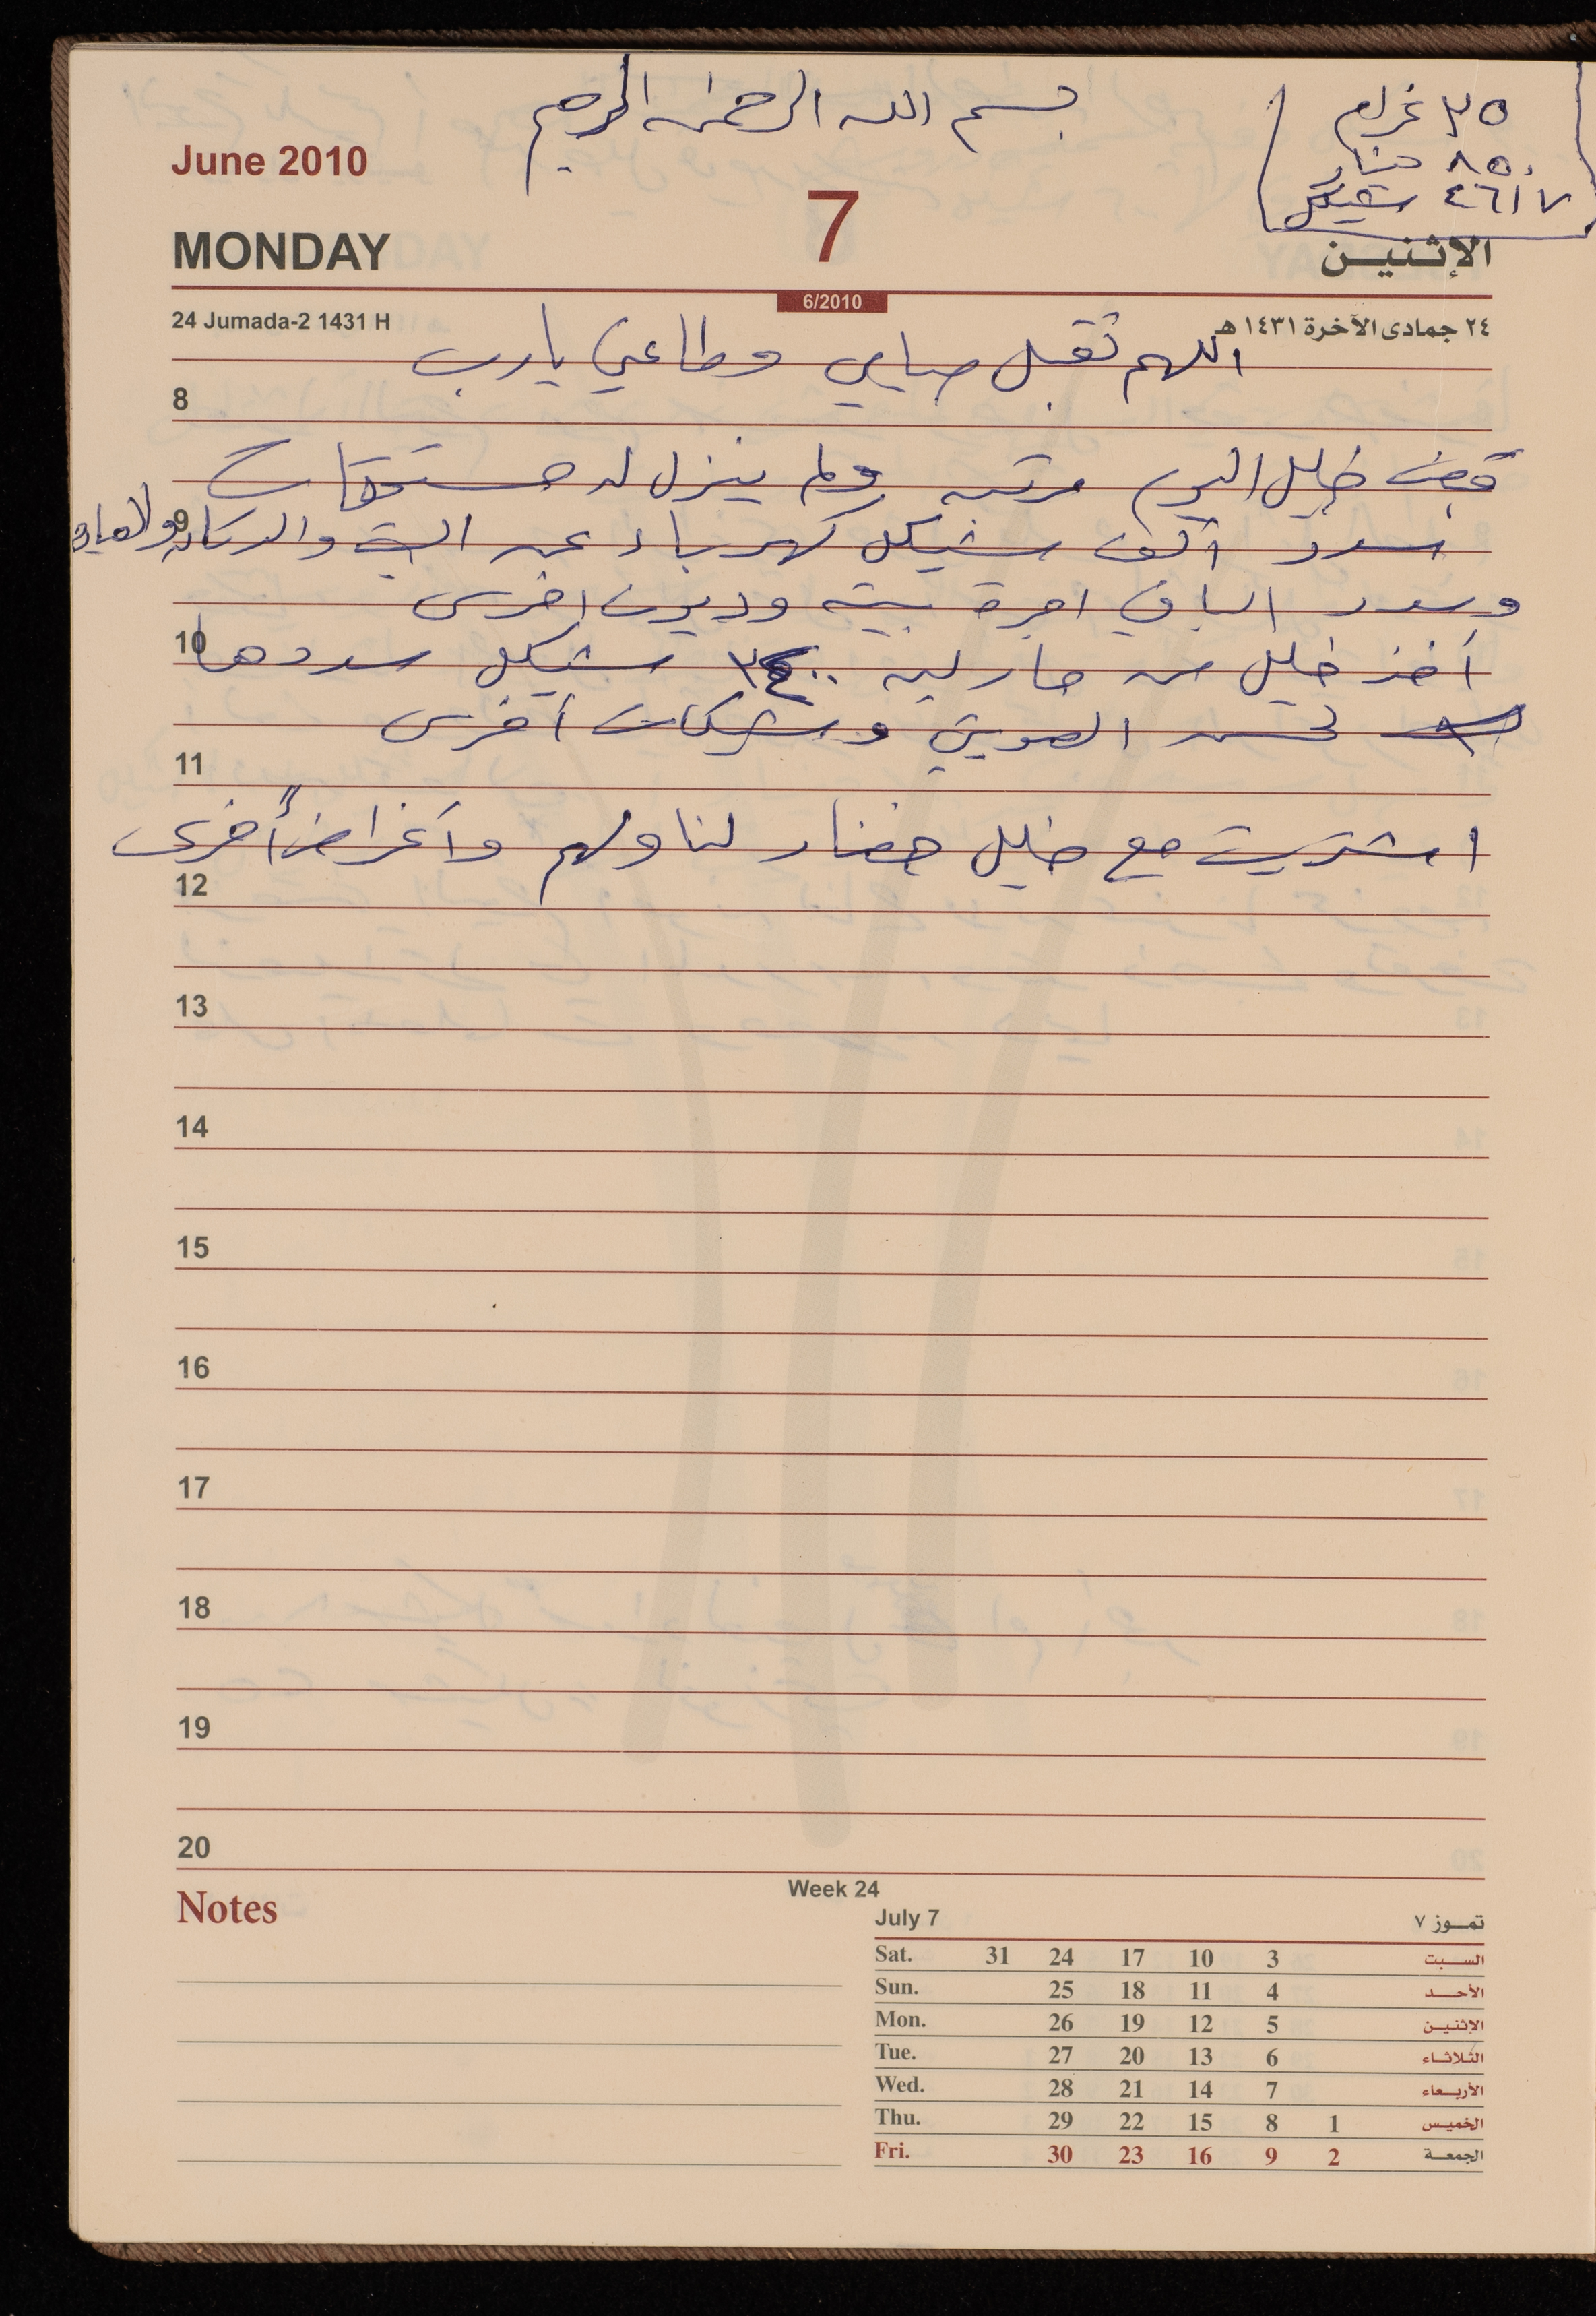 بسم الله الرحمن الرحيم
٣٥ غرام
٨٥٠ دينار
٤٦١٧ شيكل
June 2010
7
MONDAY
الإثنيـن
6/2010
24 Jumada-2 1431 H
٢٤ جمادى الآخرة ١٤٣١ هـ
اللهم تقبل صيامي وطاعتي يارب
8
قبض خليل اليوم مرتبه ولم ينزل له مستحقات
9
سدد ألف شيكل كهرباء عن البيت والدكان والمياه
وسدد الباقي اجرة بيته وديون اخرى
10
أخذ خليل من مارلين ٣٤٠٠ شيكل سددها
لحسن الصويتي وشيكات أخرى
11
اشتريت مع خليل خضار لنا ولهم وأغراضاً أخرى
12
13
14
15
16
17
18
19
20
Notes
Week 24
July 7 تمــوز ٧
Sat. 31 24 17 10 3 السـبت
Sun. 25 18 11 4 الأحـد
Mon. 26 19 12 5 الإثنيـن
Tue. 27 20 13 6 الثـلاثـاء
Wed. 28 21 14 7 الأربـعاء
Thu. 29 22 15 8 1 الخميـس
Fri. 30 23 16 9 2 الجمعـة